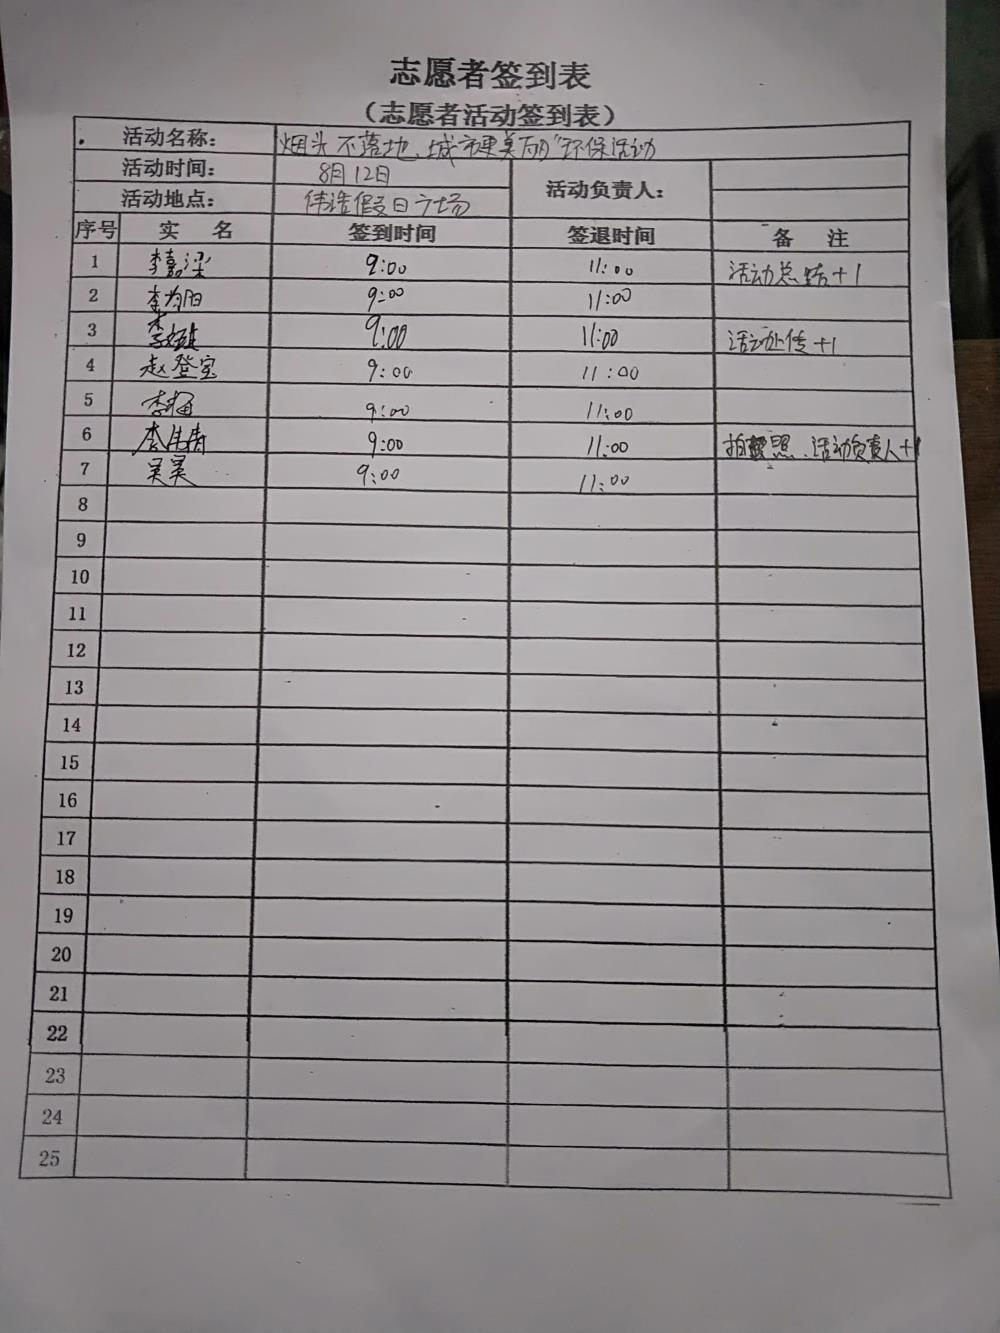 志愿者签到表
（志愿者活动签到表）
活动名称： 烟头不落地,城市更美丽"环保活动
活动时间： 8月12日 活动负责人：
活动地点： 伟浩假日广场
序号 实 名 签到时间 签退时间 备 注
1 李嘉梁 9:00 11:00 活动总结+1
2 李为阳 9:00 11:00
3 李 9:00 11:00 活动上传+1
4 赵登宝 9:00 11:00
5 李 9:00 11:00
6 李伟涛 9:00 11:00 拍照、活动负责人+1
7 吴昊 9:00 11:00
8
9
10
11
12
13
14
15
16
17
18
19
20
21
22
23
24
25